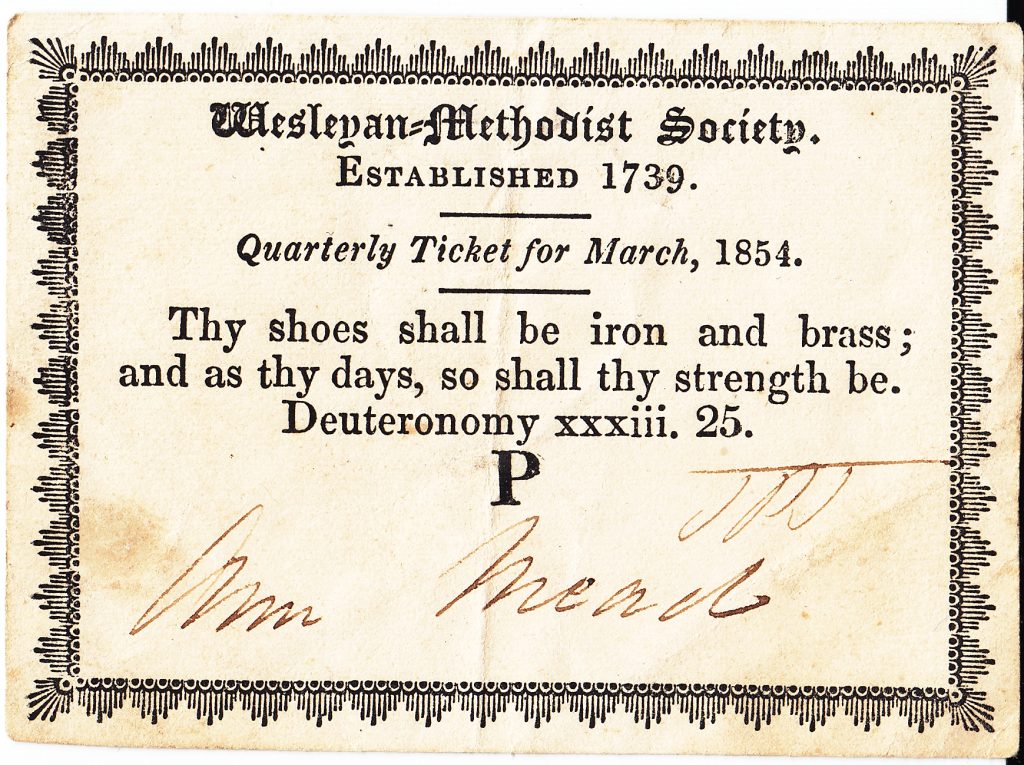 Wesleyan-Methodist Society.
ESTABLISHED 1739.
Quarterly Ticket for March, 1854.
Thy shoes shall be iron and brass;
and as thy days, so shall thy strength be.
Deuteronomy xxxiii. 25.
P
Ann Mead